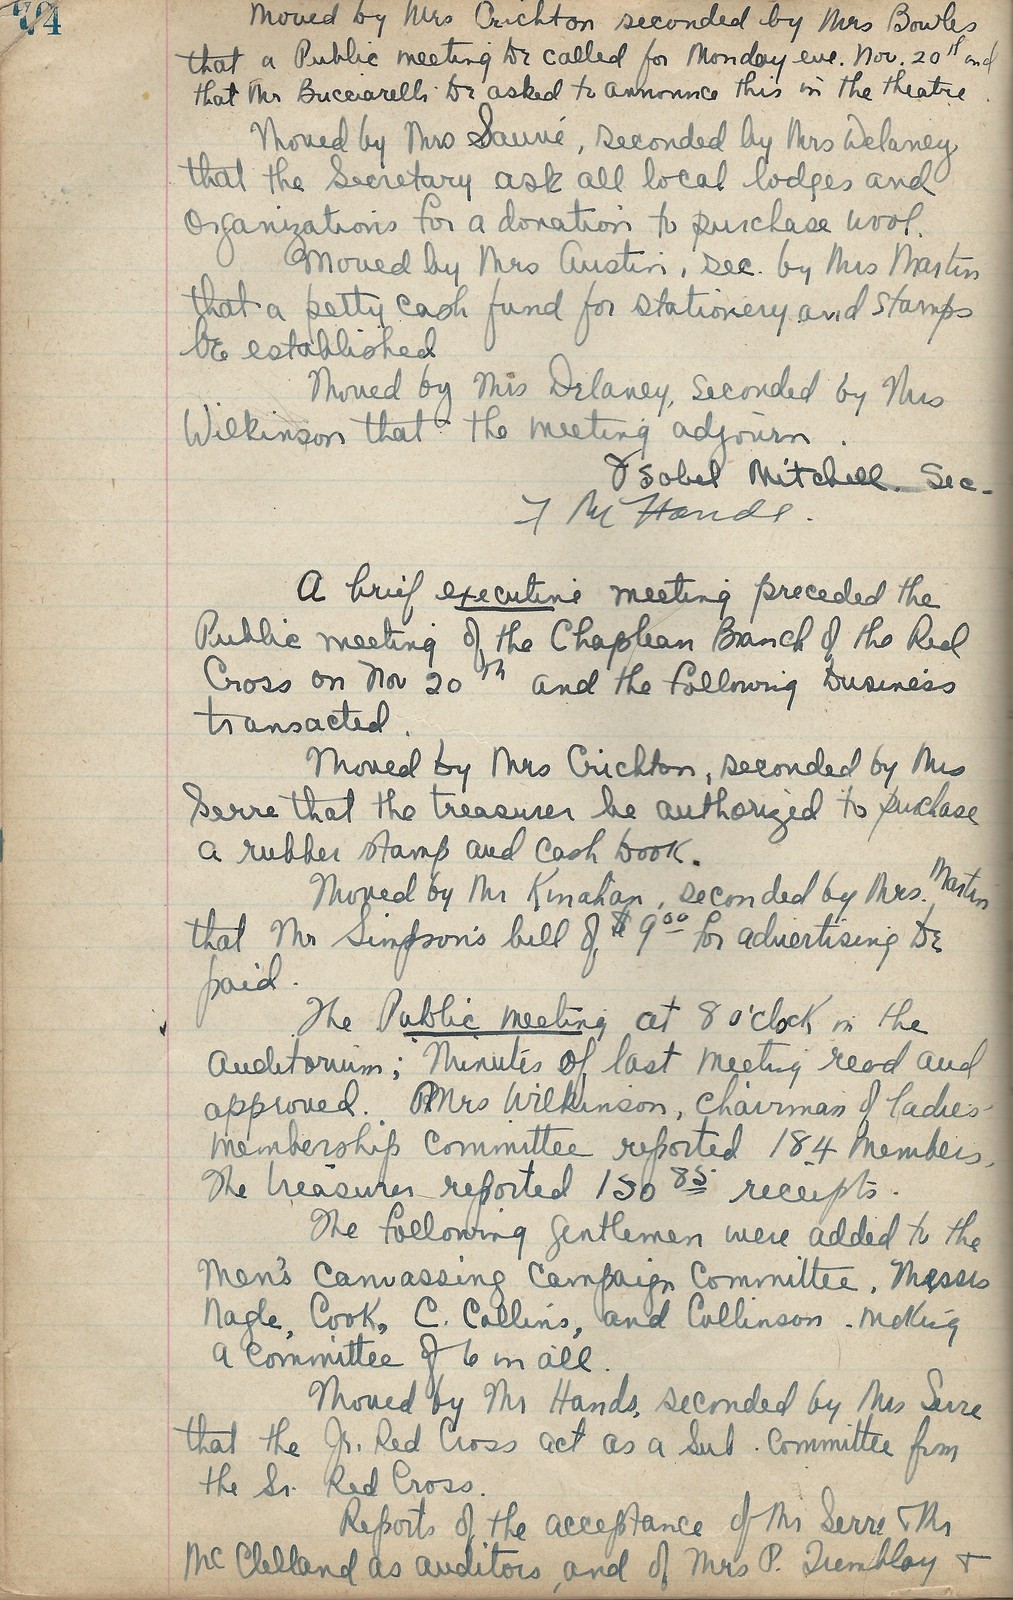 74
Moved by Mrs Crichton seconded by Mrs Bowles
that a Public meeting be called for Monday eve. Nov. 20th and
that Mr Bucciarelli be asked to announce this in the theatre.
Moved by Mrs Sauvé, seconded by Mrs Delaney
that the Secretary ask all local lodges and
organizations for a donation to purchase wool.
Moved by Mrs Austin, sec. by Mrs Martin
that a petty cash fund for stationery and stamps
be established
Moved by Mrs Delaney, seconded by Mrs
Wilkinson that the meeting adjourn.
Ysobel Mitchell. Sec.
M Hands.
A brief executive meeting preceded the
Public meeting of the Chapleau Branch of the Red
Cross on Nov 20th and the following business
transacted.
Moved by Mrs Crichton, seconded by Mrs
Serre that the treasurer be authorized to purchase
a rubber stamp and cash book.
Moved by Mr Kinahan, seconded by Mrs. Martin
that Mr Simpson's bill of $9.00 for advertising be
paid.
The Public meeting at 8 o'clock in the
auditorium; Minutes of last meeting read and
approved. Mrs Wilkinson, chairman of ladies
membership committee reported 184 members.
The treasurer reported 150 85 receipts.
The following gentlemen were added to the
Men's Canvassing Campaign Committee, Messrs
Nagle, Cook, C. Collins, and Collinson. making
a committee of 6 in all.
Moved by Mr Hands, seconded by Mrs Serre
that the Jr. Red Cross act as a Sub. committee from
the Sr. Red Cross.
Reports of the acceptance of Mr Serre & Mr
McClelland as auditors, and of Mrs P. Tremblay +